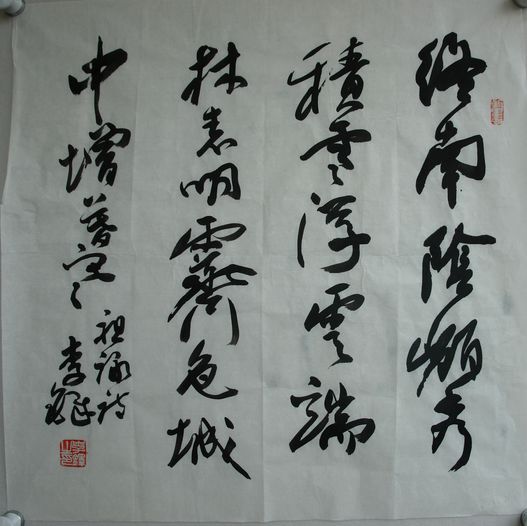 終南陰嶺秀
積雪浮雲端
林表明霽色城
中增暮寒
祖詠詩
李鐸